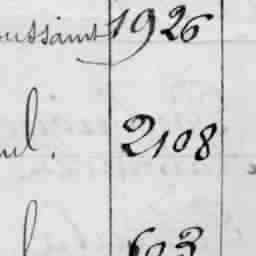 oussaint 1926
ul. 2108
l 603